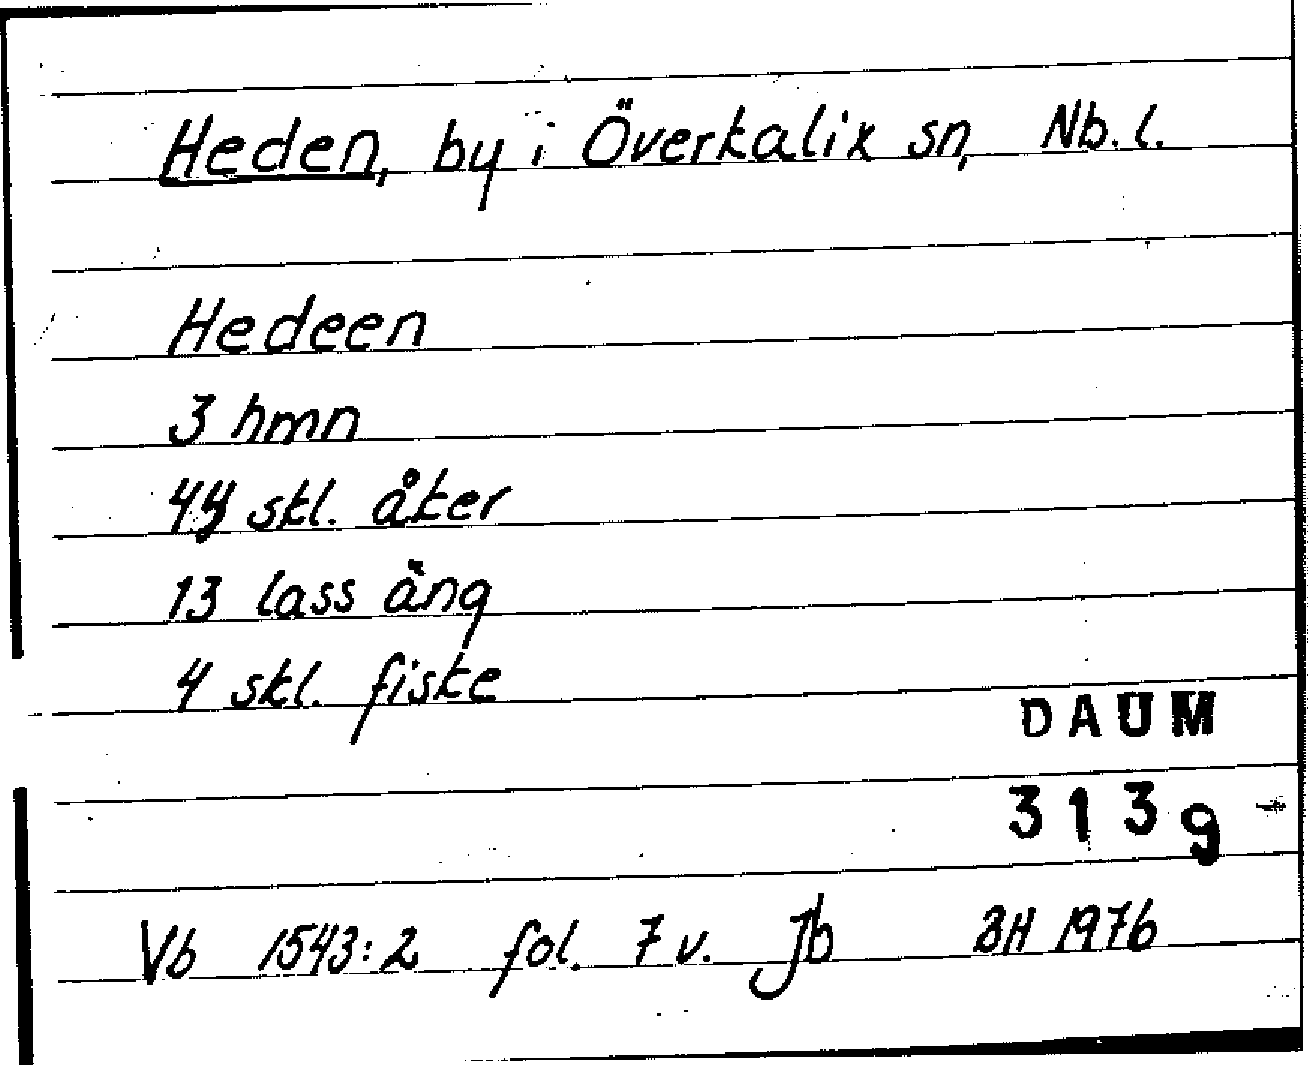 Heden, by i Överkalix sn, Nb.l.
Hedeen
3 hmn
skl. åker
13 lass äng
4 skl. fiske
DAUM
3139
Vb 1543:2 fol. 7 v. Jb BH 1976